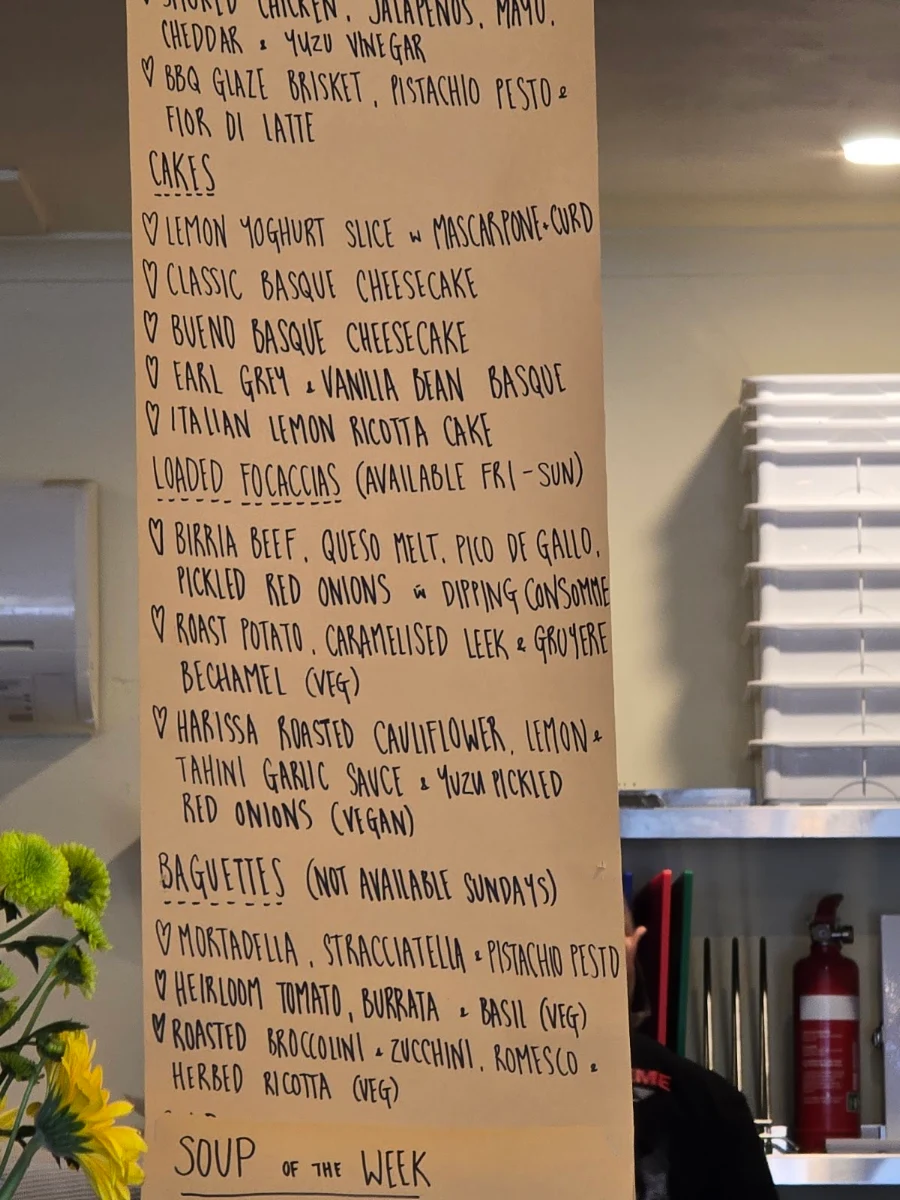 SMOKED CHICKEN, JALAPENOS, MAYO,
CHEDDAR & YUZU VINEGAR
♡ BBQ GLAZE BRISKET, PISTACHIO PESTO &
FIOR DI LATTE
CAKES
♡ LEMON YOGHURT SLICE W MASCARPONE + CURD
♡ CLASSIC BASQUE CHEESECAKE
♡ BUENO BASQUE CHEESECAKE
♡ EARL GREY & VANILLA BEAN BASQUE
♡ ITALIAN LEMON RICOTTA CAKE
LOADED FOCACCIAS (AVAILABLE FRI - SUN)
♡ BIRRIA BEEF, QUESO MELT, PICO DE GALLO,
PICKLED RED ONIONS W DIPPING CONSOMME
♡ ROAST POTATO, CARAMELISED LEEK & GRUYERE
BECHAMEL (VEG)
♡ HARISSA ROASTED CAULIFLOWER, LEMON &
TAHINI GARLIC SAUCE & YUZU PICKLED
RED ONIONS (VEGAN)
BAGUETTES (NOT AVAILABLE SUNDAYS)
♡ MORTADELLA, STRACCIATELLA & PISTACHIO PESTO
♡ HEIRLOOM TOMATO, BURRATA & BASIL (VEG)
♡ ROASTED BROCCOLINI & ZUCCHINI, ROMESCO &
HERBED RICOTTA (VEG)
SOUP OF THE WEEK